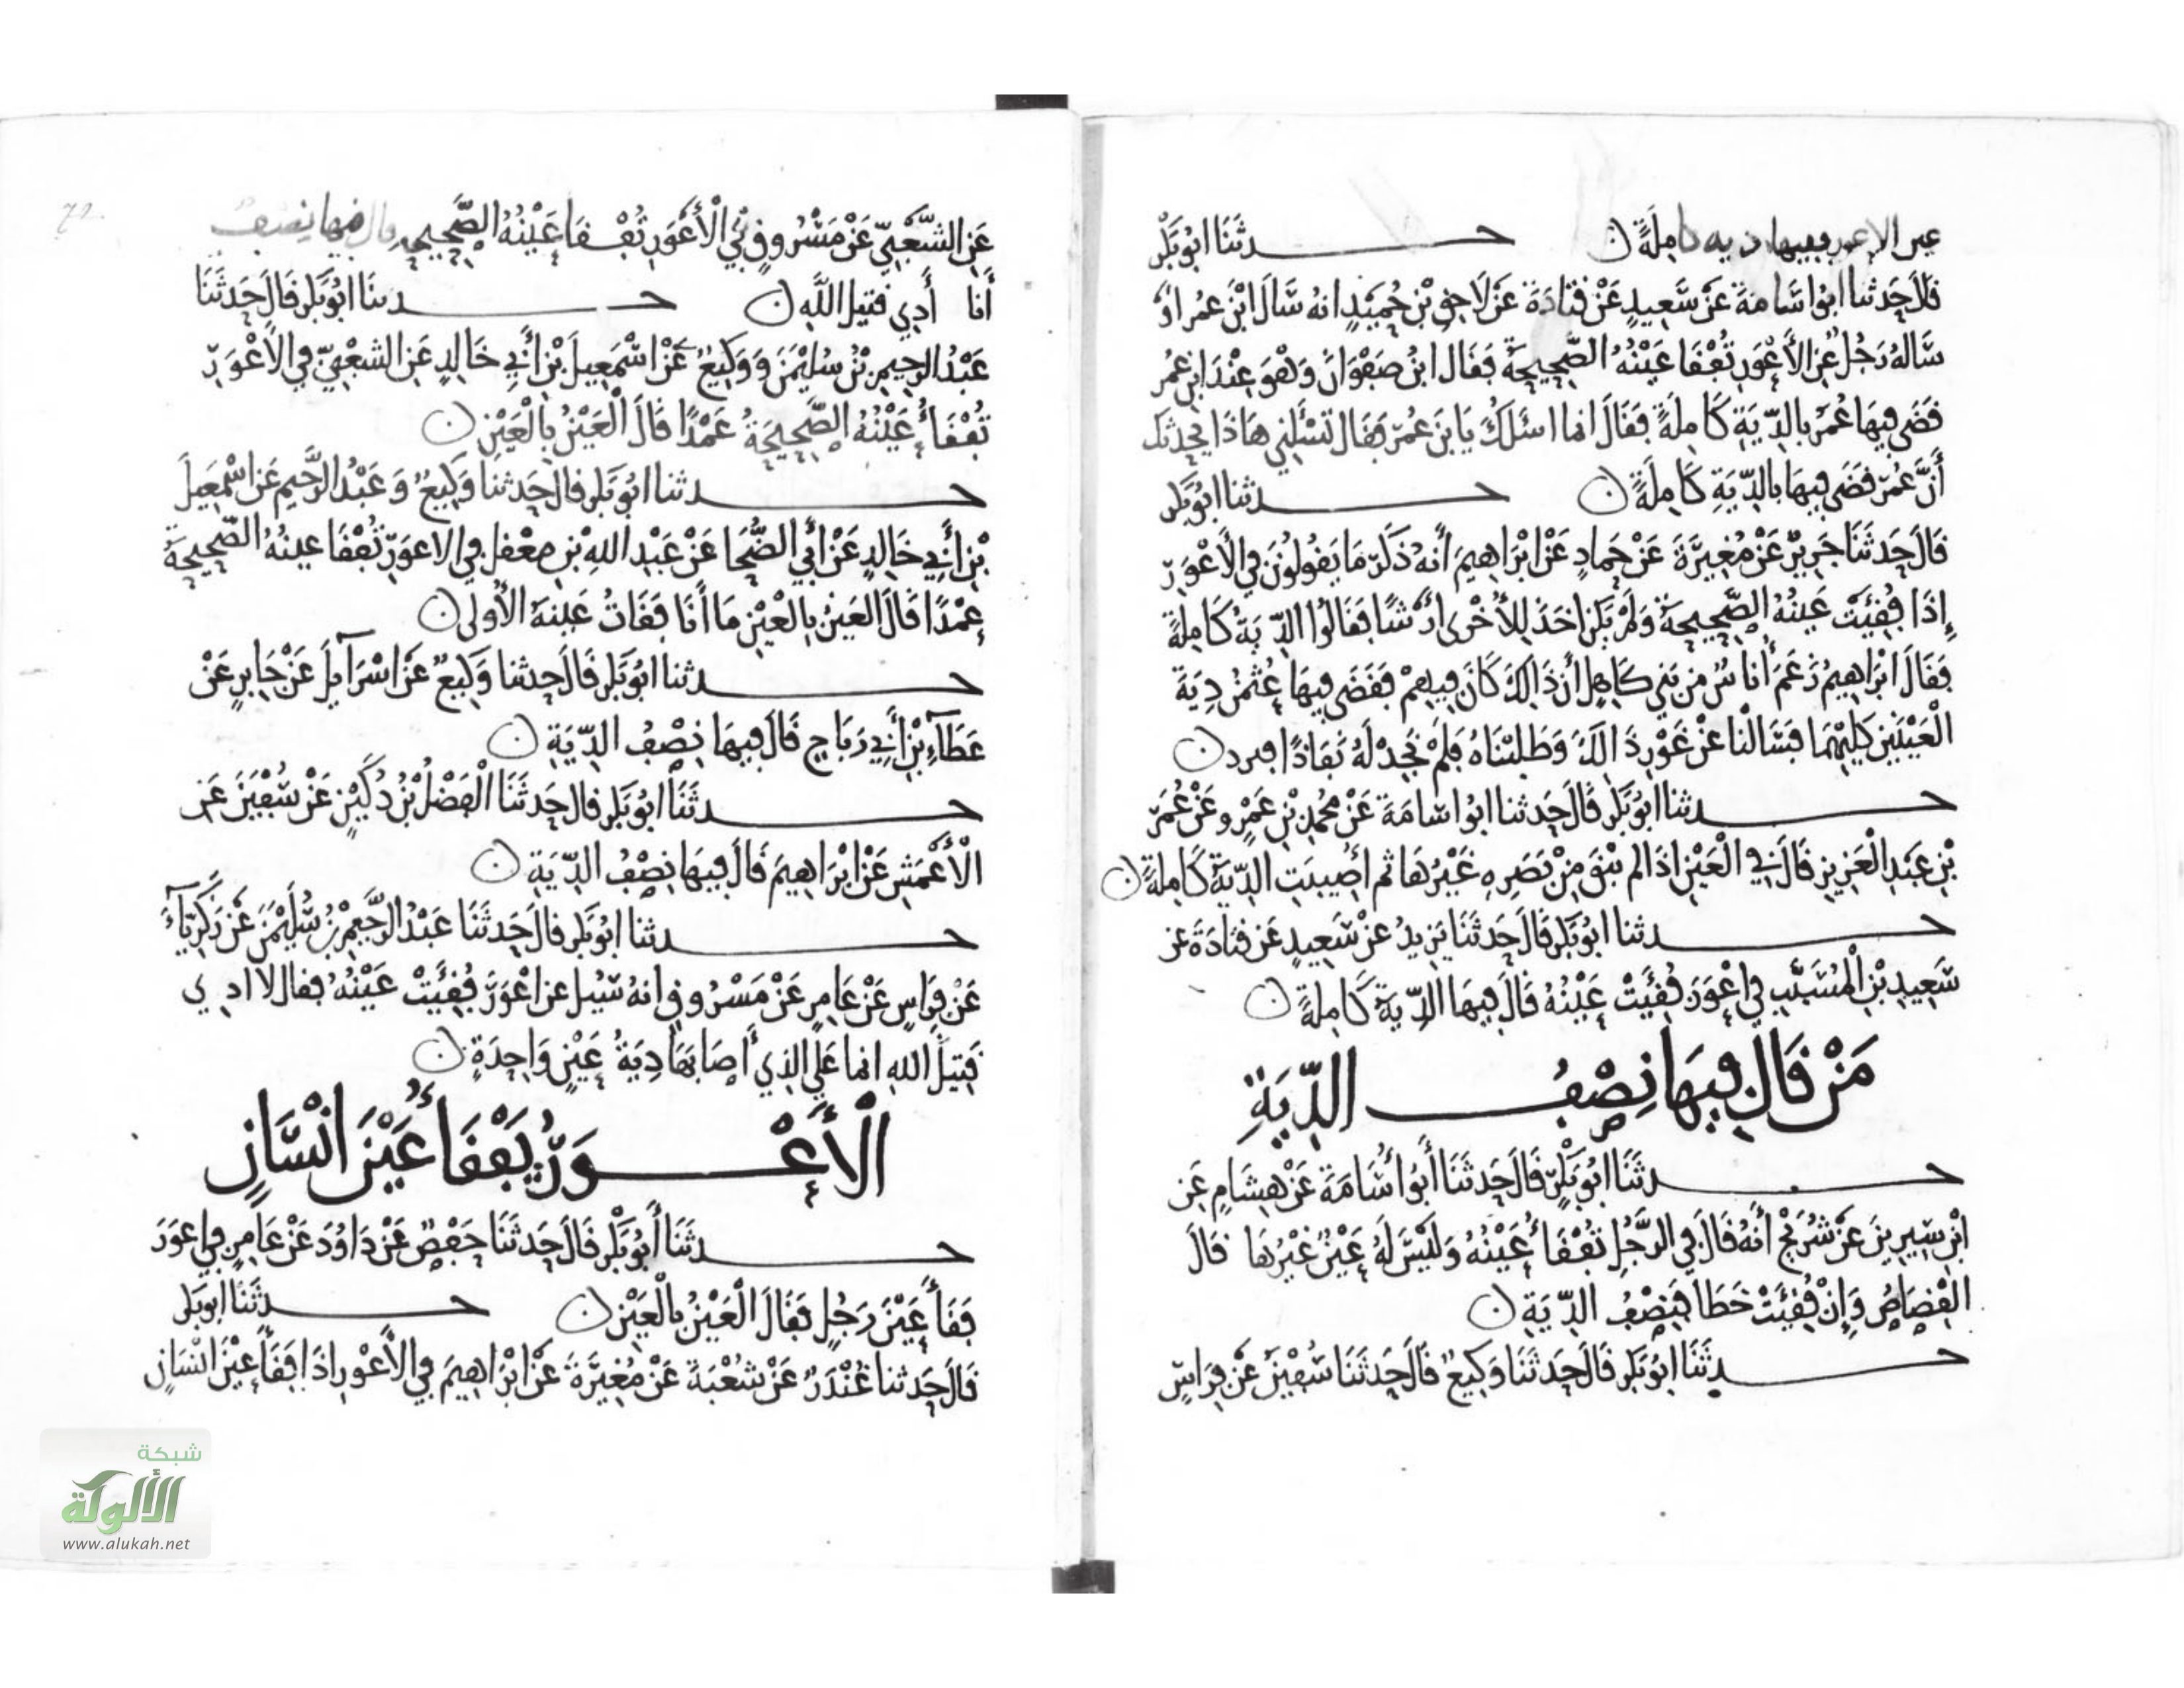 عين الاعور ففيها دية كاملةً ن حدثنا ابو بكر
قال حدثنا ابو اسامة عن سعيد عن قتادة عن لاحق بن حميد انه سال ابن عمر او
ساله رجل عن الأعور تُفقا عينه الصحيحة فقال ابن صفوان وهو عند ابن عمر
قضى فيها عمر بالدية كاملة فقال انما اسئلك يا بن عمر فقال تسئلني هاذا يحدثك
أن عمر قضى فيها بالدية كاملة ن حدثنا ابو بكر
قال حدثنا جرير عن مغيرة عن حماد عن ابراهيم أنه ذكر ما يقولون في الأعور
إذا فقئت عينه الصحيحة ولم يكن اخذ للأخرى ارشا فقالوا الدية كاملة
فقال ابراهيم زعم أناس من بني كاهل أن ذالك كان فيهم فقضى فيها عثمن دية
العينين كليهما فسالنا عن غور ذالك وطلبناه فلم نجد له نفاذا ن
حدثنا ابو بكر قال حدثنا ابو اسامة عن محمد بن عمرو عن عمر
بن عبد العزيز قال في العين اذا لم يبق من بصره غيرها ثم أصيبت الدية كاملة ن
حدثنا ابو بكر قال حدثنا يزيد عن سعيد عن قتادة عن
سعيد بن المسيب في اعور فقئت عينه قال فيها الدية كاملة ن
من قال فيها نصف الدية
حدثنا ابو بكر قال حدثنا أبو أسامة عن هشام عن
ابن سيرين عن شريح أنه قال في الرجل تفقأ عينه وليس له عين غيرها قال
القصاص وإن فقئت خطا فنصف الدية ن
حدثنا ابو بكر قال حدثنا وكيع قال حدثنا سفين عن فراس
عن الشعبي عن مسروق في الأعور تفقا عينه الصحيحة قال فيها نصف
أنا أدي قتيل الله ن حدثنا ابو بكر قال حدثنا
عبد الرحيم بن سليمن ووكيع عن اسمعيل بن أبي خالد عن الشعبي في الاعور
تفقأ عينه الصحيحة عمدا قال العين بالعين ن
حدثنا ابو بكر قال حدثنا وكيع وعبد الرحيم عن اسمعيل
بن أبي خالد عن أبي الضحا عن عبد الله بن مغفل في الاعور تفقا عينه الصحيحة
عمدا قال العين بالعين ما أنا فقات عينه الأولى ن
حدثنا ابو بكر قال حدثنا وكيع عن اسرآيل عن جابر عن
عطآء بن أبي رباح قال فيها نصف الدية ن
حدثنا ابو بكر قال حدثنا الفضل بن دكين عن سفين عن
الأعمش عن ابراهيم قال فيها نصف الدية ن
حدثنا ابو بكر قال حدثنا عبد الرحيم بن سليمن عن زكرياء
عن فراس عن عامر عن مسروق انه سئيل عن اعور فقئت عينه فقال لا ادي
قتيل الله انما على الذي أصابها دية عين واحدة ن
الأعور يفقأ عين انسان
حدثنا أبو بكر قال حدثنا حفص عن داود عن عامر في اعور
فقأ عين رجل فقال العين بالعين ن حدثنا ابو بكر
قال حدثنا غندر عن شعبة عن مغيرة عن ابراهيم في الأعور اذا فقأ عين انسان
شبكة
الألوكة
www.alukah.net